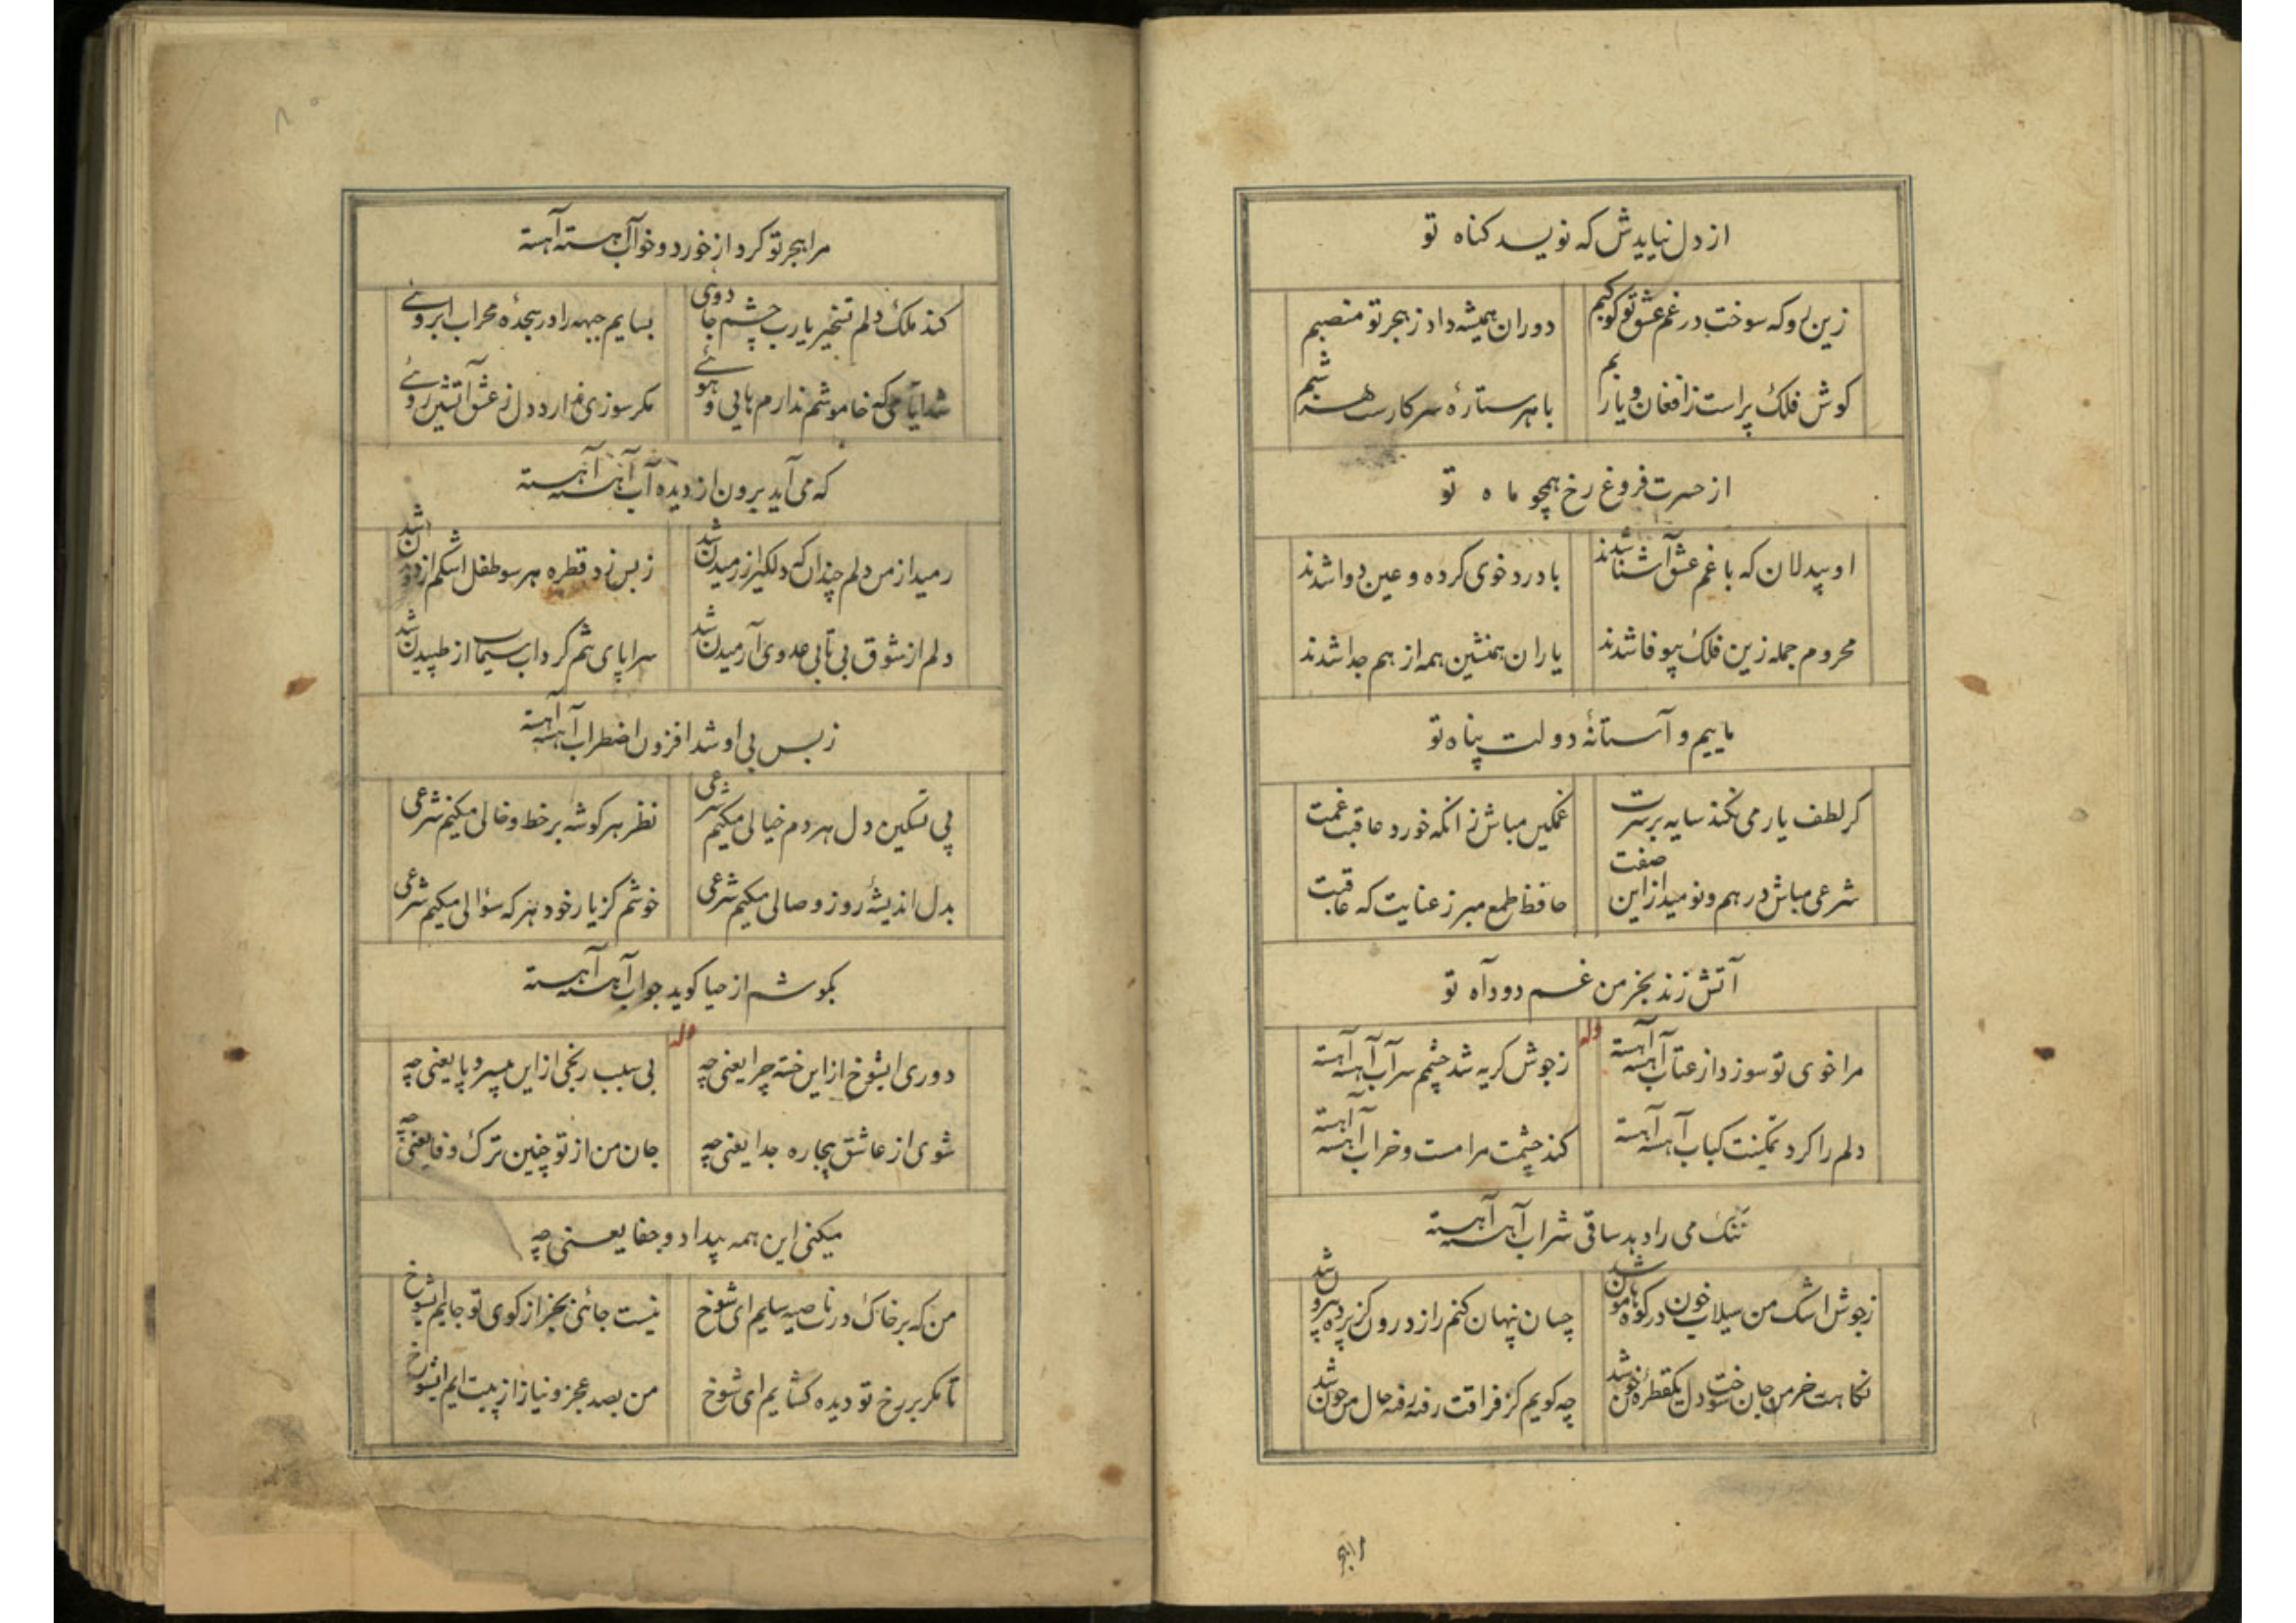 از دل نیایدش که نویسد کناه تو
زین رو که سوخت در غم عشق تو کوکبم
دوران همیشه داد ز هجر تو منصبم
کوش فلک پر است ز افغان و یاربم
با هر ستارهٔ سر کارست هر شبم
از حسرت فروغ رخ همچو ماه تو
او بیدلان که با غم عشق آشنا شدند
با درد خوی کرده و عین دوا شدند
محروم جمله زین فلک بیوفا شدند
یاران همنشین همه از هم جدا شدند
ماییم و آستانهٔ دولت پناه تو
کر لطف یار می نکند سایه بر سرت
غمکین مباش زانکه خورد عاقبت غمت
شرعی مباش درهم و نومید از این صفت
حافظ طمع مبر ز عنایت که عاقبت
آتش زند بخرمن غم دود آه تو
وله
مرا خوی تو سوزد از عتاب آهسته آهسته
ز جوش کریه شد چشمم سرآب آهسته آهسته
دلم را کرد تمکینت کباب آهسته آهسته
کند چشمت مرا مست و خراب آهسته آهسته
تنک می را دهد ساقی شراب آهسته آهسته
ز جوش اشک من سیلاب خون در کوه و هامون شد
چسان پنهان کنم راز درون کز پرده بیرون شد
نکاهت خرمن جان سوخت دل یکقطرهٔ خون شد
چه کویم کز فراقت رفته رفته حال من چون شد
را هجر
مرا هجر تو کرد از خورد و خواب آهسته آهسته
کند ملک دلم تسخیر یا رب چشم جادوی
بسایم جبهه را در سجدهٔ محراب ابروئے
شد ایامی که خاموشم ندارم هایی و هوئے
مکر سوزی ندارد دل ز عشق آتشین روئے
که می آید برون از دیده آب آهسته آهسته
رمید از من دلم چندان که دلکیر از رمیدن شد
ز بس زد قطره هر سو طفل اشکم از دویدن شد
دلم از شوق بی تابی عدوی آرمیدن شد
سراپای تنم کرداب سیماب از طپیدن شد
ز بس بی او شد افزون اضطراب آهسته آهسته
پی تسکین دل هر دم خیالی میکنم شرعی
نظر هر کوشه بر خط و خالی میکنم شرعی
بدل اندیشهٔ روز وصالی میکنم شرعی
خوشم کز یار خود هر که سؤالی میکنم شرعی
بکوشم از حیا کوید جواب آهسته آهسته
وله
دوری ایشوخ از این خسته چرا یعنی چه
بی سبب رنجی از این بی سر و پا یعنی چه
شوی از عاشق بیچاره جدا یعنی چه
جان من از تو چنین ترک وفا یعنی چه
میکنی این همه بیداد و جفا یعنی چه
من که بر خاک درت ناصیه سایم ای شوخ
نیست جائی بجز از کوی تو جایم ایشوخ
تا مکر بر رخ تو دیده کشایم ای شوخ
من بصد عجز و نیاز از پیت ایم ایشوخ